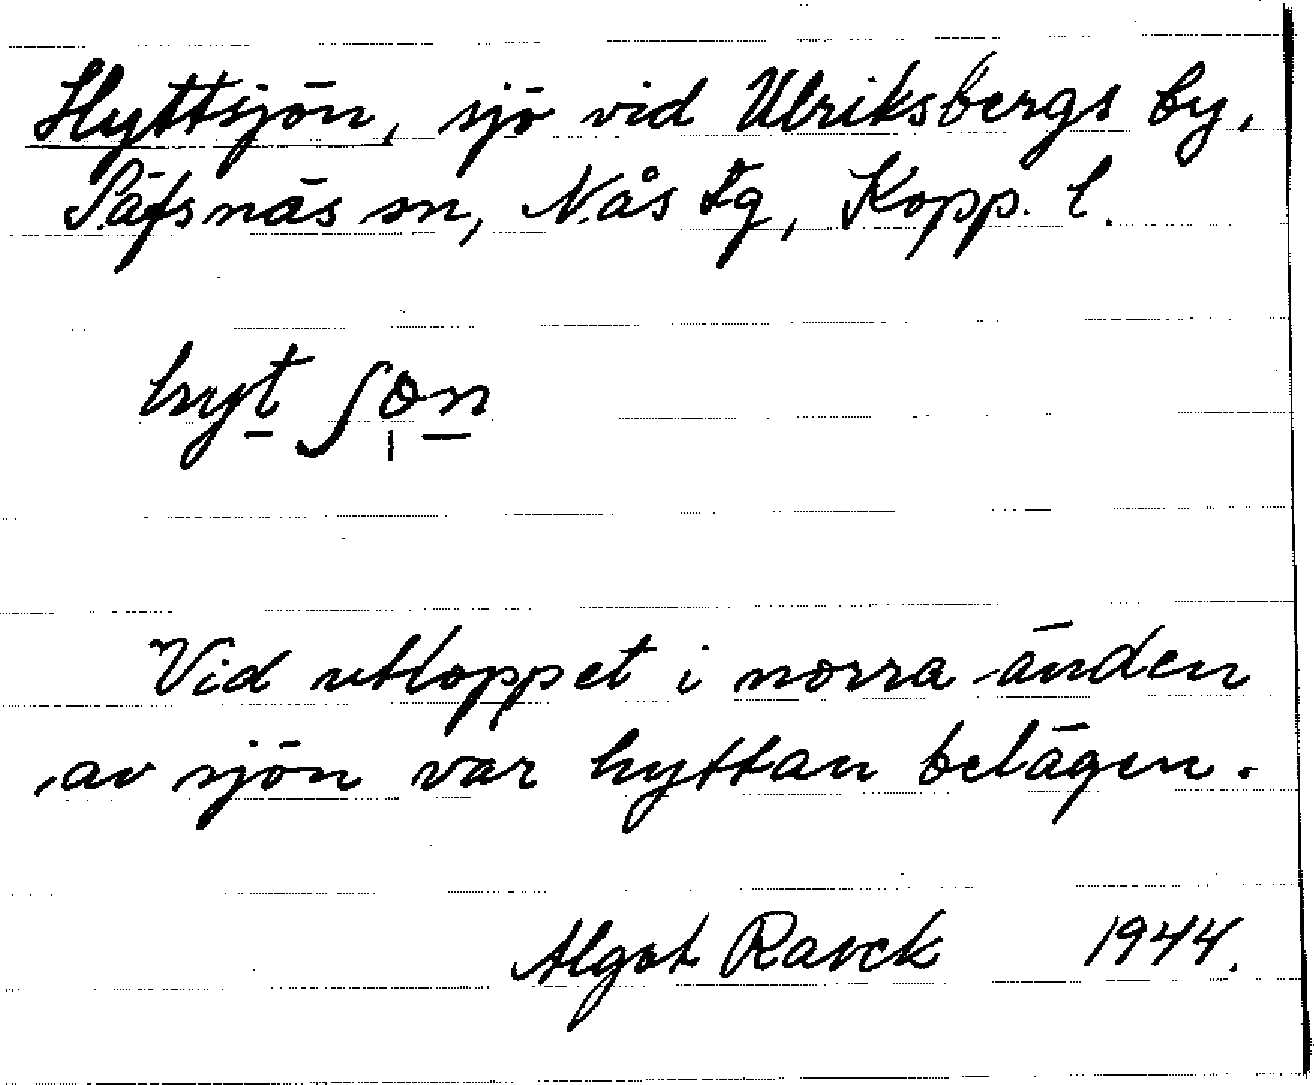 Hyttsjön, sjö vid Ulriksbergs by,
Säfsnäs sn, Nås tg, Kopp. l.
hyt ʃɵn
Vid utloppet i norra änden
av sjön var hyttan belägen.
Algot Ravck 1944.